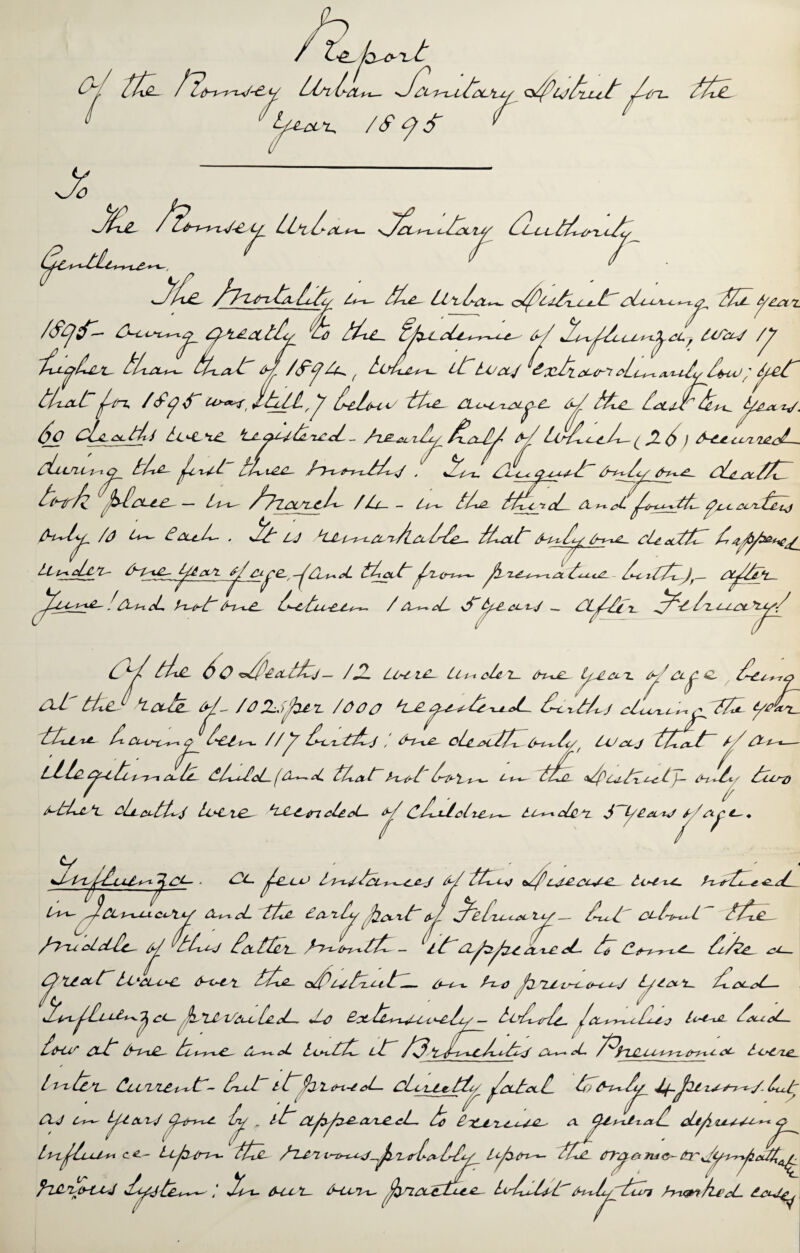 Report
Of the Romsey Urban Sanitary District for the
Year 1895
To
The Romsey Urban Sanitary Authority
Gentlemen,
The Mortality in the Urban District during the year
1895 - Owing greatly to the Epidemic of Influenza, was 17
higher than that of 1894, when it was extraordinarily low; yet
that for 1895 was, still, 7 below the average of the last ten years.
60 deaths were registered - nearly half of which (26) occurred
during the first three months. In August only one death
took place - in March 14 - in the third and fourth quarters
only 10 in each. It is remarkable that only one death happened
under one year of age, - (and that from premature birth), - after
June! and not one between 1 and 5 years - after February!
Of the 60 Deaths - 12 were under one year of age, being
at the rate of - 102,5 per 1000 registered births during the year
there having been 117 births; one death only, was that of an
illegitimate child (and that not born in the District) - only two
other deaths were recorded of Children under 5 years of age.
Influenza. A few instances of this disease were noticed
in January and the early part of February - but about the
middle of this latter month - it appeared to come like a
great wave over the District - on no previous year had
Influenza prevailed so extensively - whole families were laid
low at one time and with it Bronchitis and Pneumonia were
inter current - but it proved directly fatal to only 4 persons. but,
as in years gone by, it appeared to exercise a general depressing
influence - upon the nervous, probably upon the organic or Sympathetic
nervous System; In our own practice whilst only two marked cases